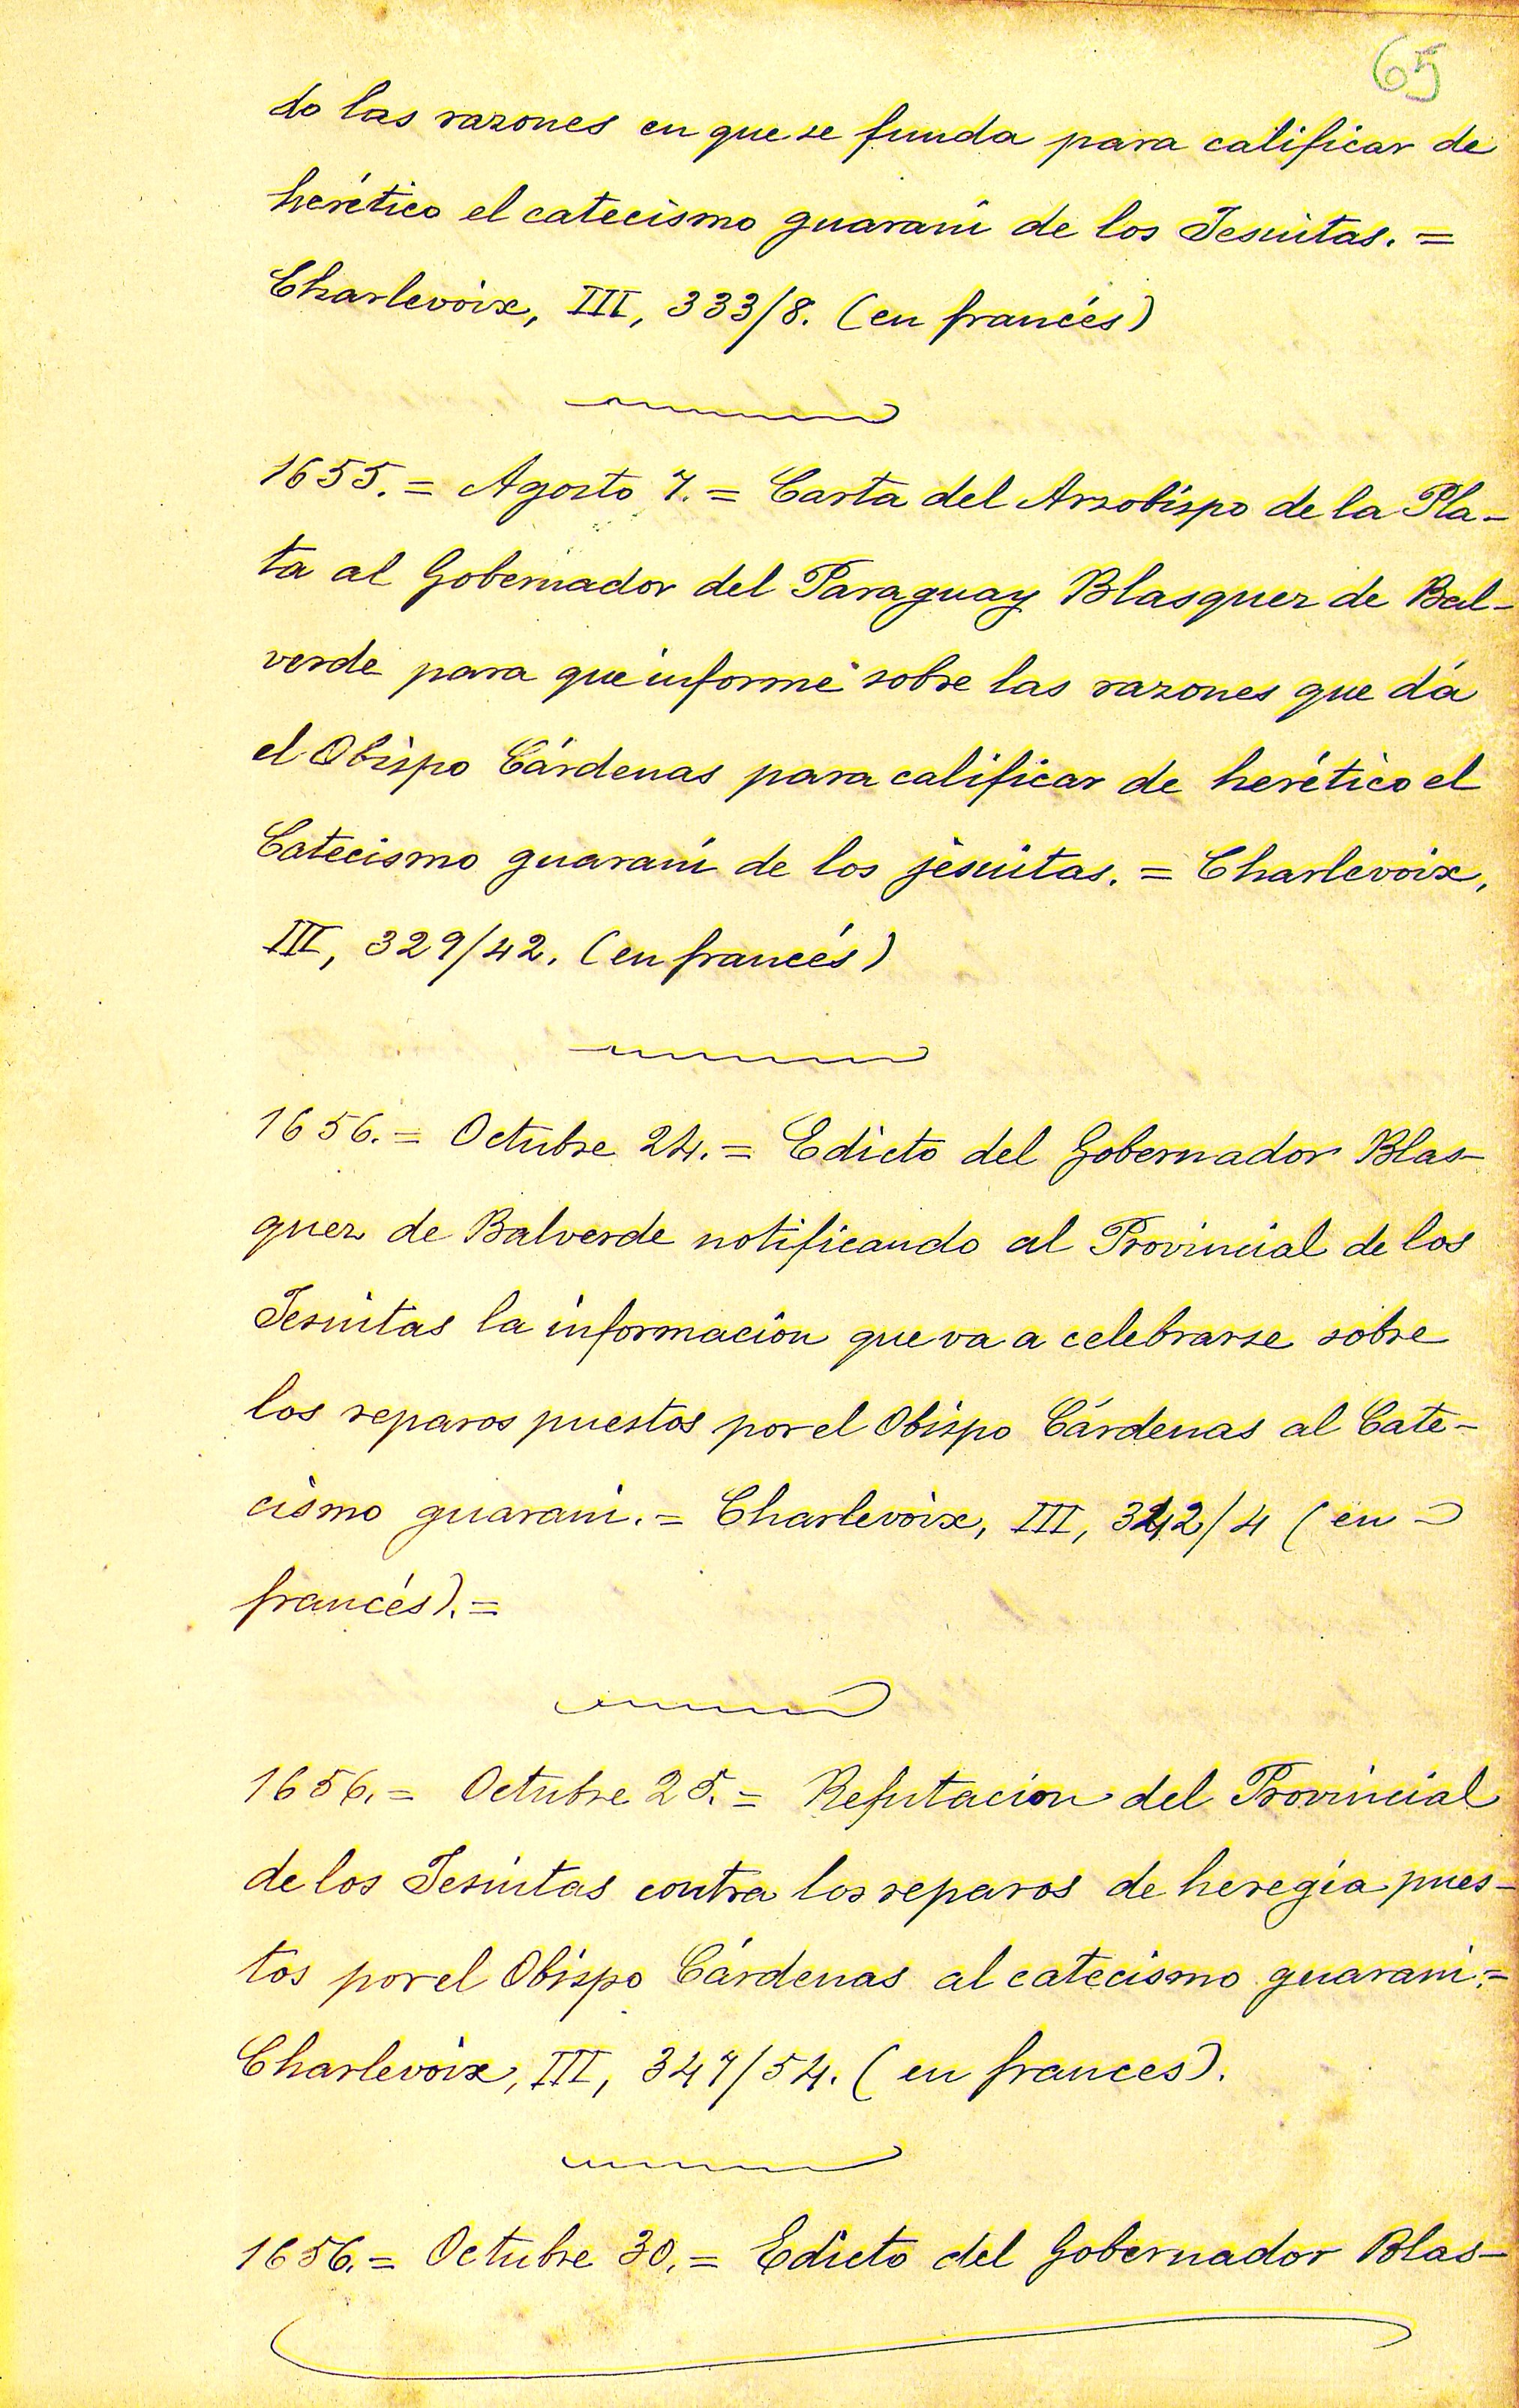 65
do las razones en que se funda para calificar de
herético el catecismo guaraní de los Jesuitas. =
Charlevoix, III, 333/8. (en francés)
1655. = Agosto 7. = Carta del Arzobispo de la Pla-
ta al Gobernador del Paraguay Blasquez de Bal-
verde para que informe sobre las razones que dá
el Obispo Cárdenas para calificar de herético el
Catecismo guaraní de los jesuitas. = Charlevoix,
III, 329/42. (en francés)
1656. = Octubre 24. = Edicto del Gobernador Blas-
quez de Balverde notificando al Provincial de los
Jesuitas la información que va a celebrarse sobre
los reparos puestos por el Obispo Cárdenas al Cate-
cismo guaraní. = Charlevoix, III, 342/4 (en
francés). =
1656. = Octubre 25. = Refutacion del Provincial
de los Jesuitas contra los reparos de heregia pues-
tos por el Obispo Cárdenas al catecismo guaraní. =
Charlevoix, III, 347/54. (en frances).
1656. = Octubre 30. = Edicto del Gobernador Blas-